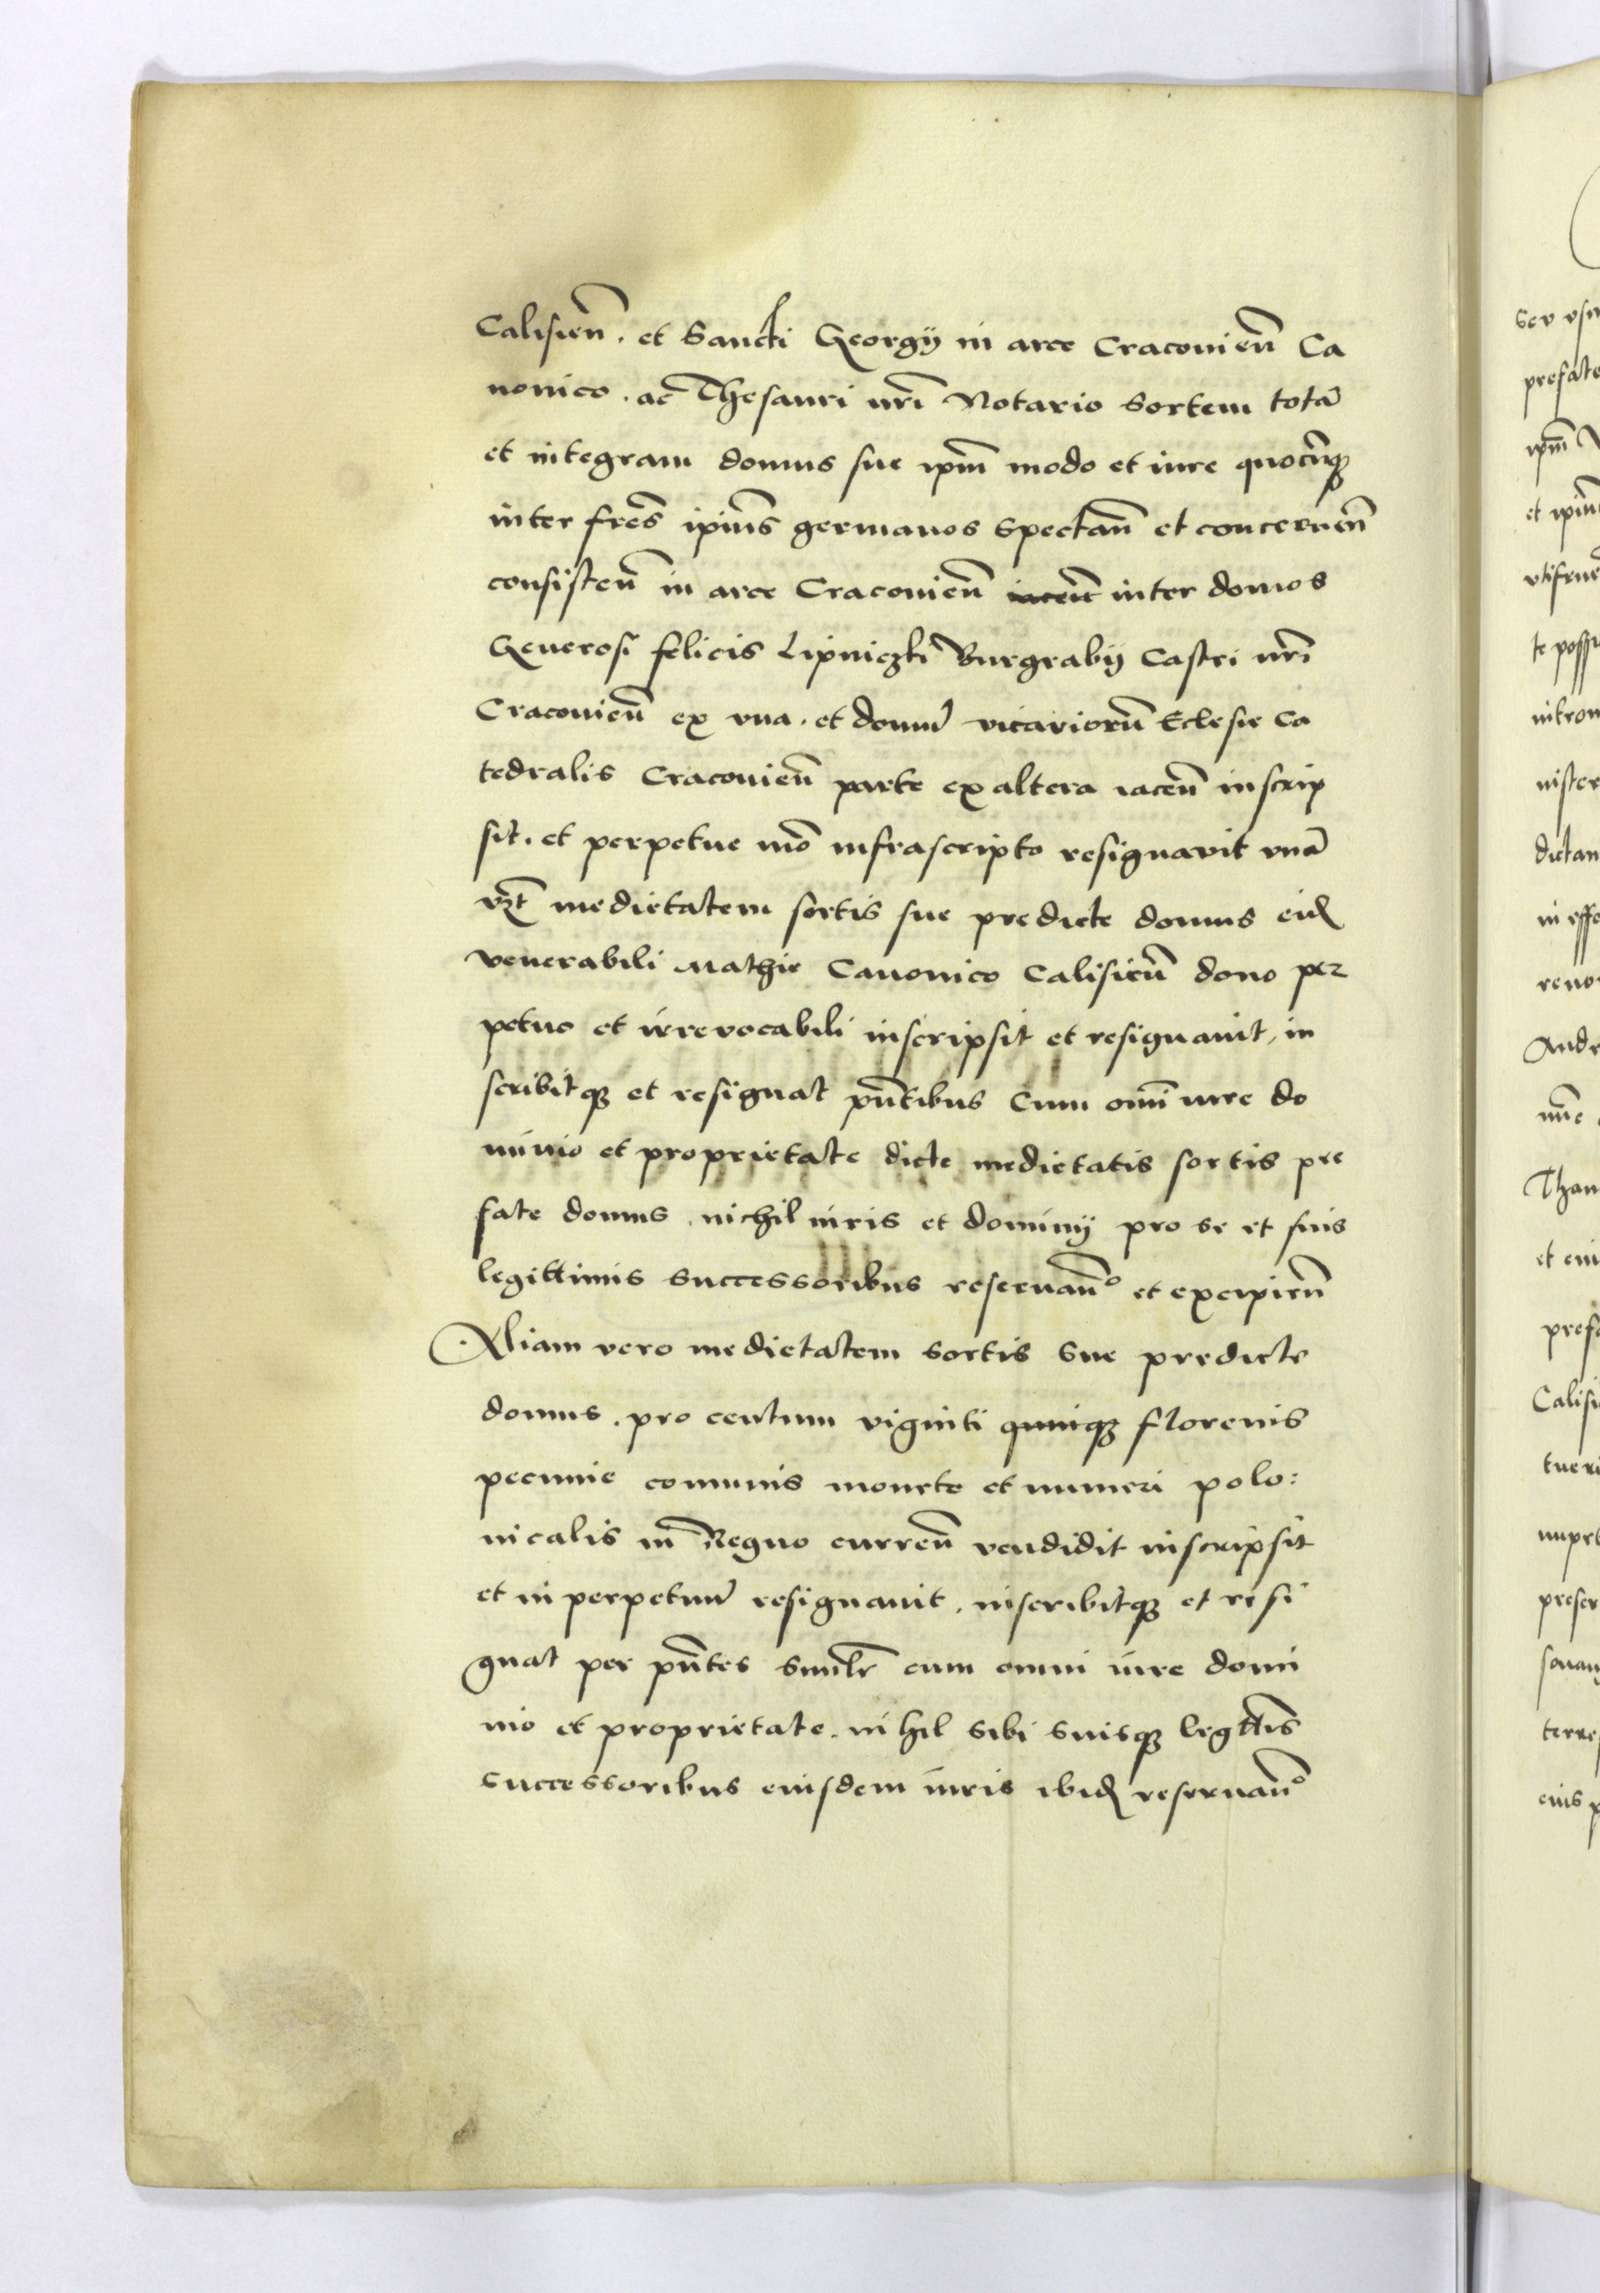 Calisien̄. et Sancti Georgij in arce Cracovien̄ Ca
nonico. ac Thesauri nr̄i Notario Sortem totā
et integram domus sue ip̄m modo et iure quocūqꝫ
inter fr̄es ip̄ius germanos Spectan̄ et concernen̄
consisten̄ in arce Cracovien̄ iacen̄ inter domos
Generosi felicis Lipniczki Burgrabij Castri nr̄i
Cracovien̄ ex vna. et domū vicariorū Eclesie Ca
tedralis Cracovien̄ parte ex altera iacen̄ inscrip
sit. et perpetue mō infrascripto resignavit vnā
vꝫt medietatem sortis sue predicte domus eidꝫ
venerabili Mathie Canonico Calisien̄ dono per
petuo et irrevocabili inscripsit et resignauit, in
scribitqꝫ et resignat pn̄tibus Cum om̄i iure do
minio et proprietate dicte medietatis sortis pre
fate domus. nichil iuris et dominij pro se et suis
legittimis Successoribus reseruan̄o et excipien̄
Aliam vero medietatem Sortis Sue predicte
domus. pro centum viginti quinqꝫ florenis
pecunie comunis monete et numeri polo:
nicalis in Regno curren̄ vendidit inscripsit
et in perpetuū resignauit. inscribitqꝫ et resi
gnat per pn̄tes Simlr̄ cum omni iure domi
nio et proprietate. nihil Sibi Suisqꝫ legttīs
Successoribus eiusdem iuris ibidꝫ reseruan̄o